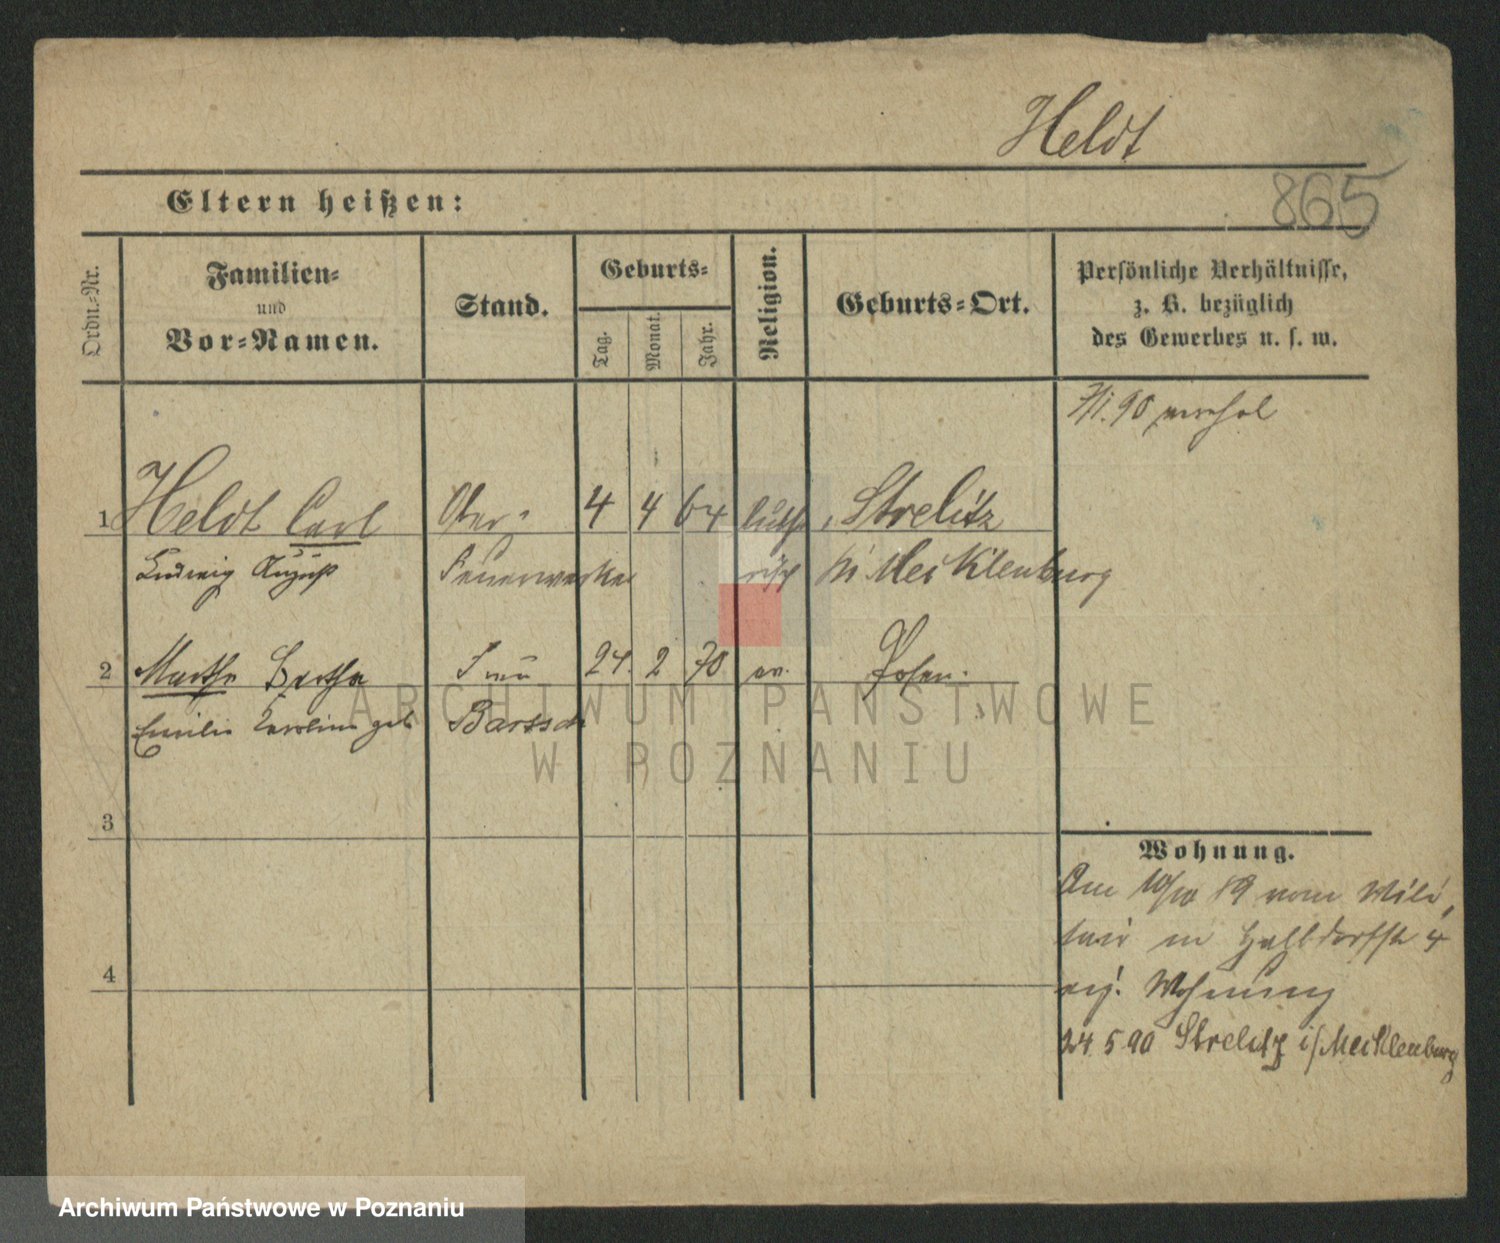 Heldt
865
Eltern heißen:
Ordn.-Nr.
Familien-
und
Vor-Namen.
Stand.
Geburts-
Tag.
Monat.
Jahr.
Religion.
Geburts-Ort.
Persönliche Verhältnisse,
z. B. bezüglich
des Gewerbes u. s. w.
90
1 Heldt Carl Ober- 4 4 64 luthe Strelitz
Ludwig August Feuerwerker risch in Mecklenburg
2 Martha Bertha Frau 24. 2 70 ev. Posen.
Emilie Karoline geb Bartsch
3
4
Wohnung.
Am 10/10 89 vom Mili,
tair in Halbdorfstr 4
eig. Wohnung
24 5 90 Strelitz i/Mecklenburg
ARCHIWUM PAŃSTWOWE
W POZNANIU
Archiwum Państwowe w Poznaniu